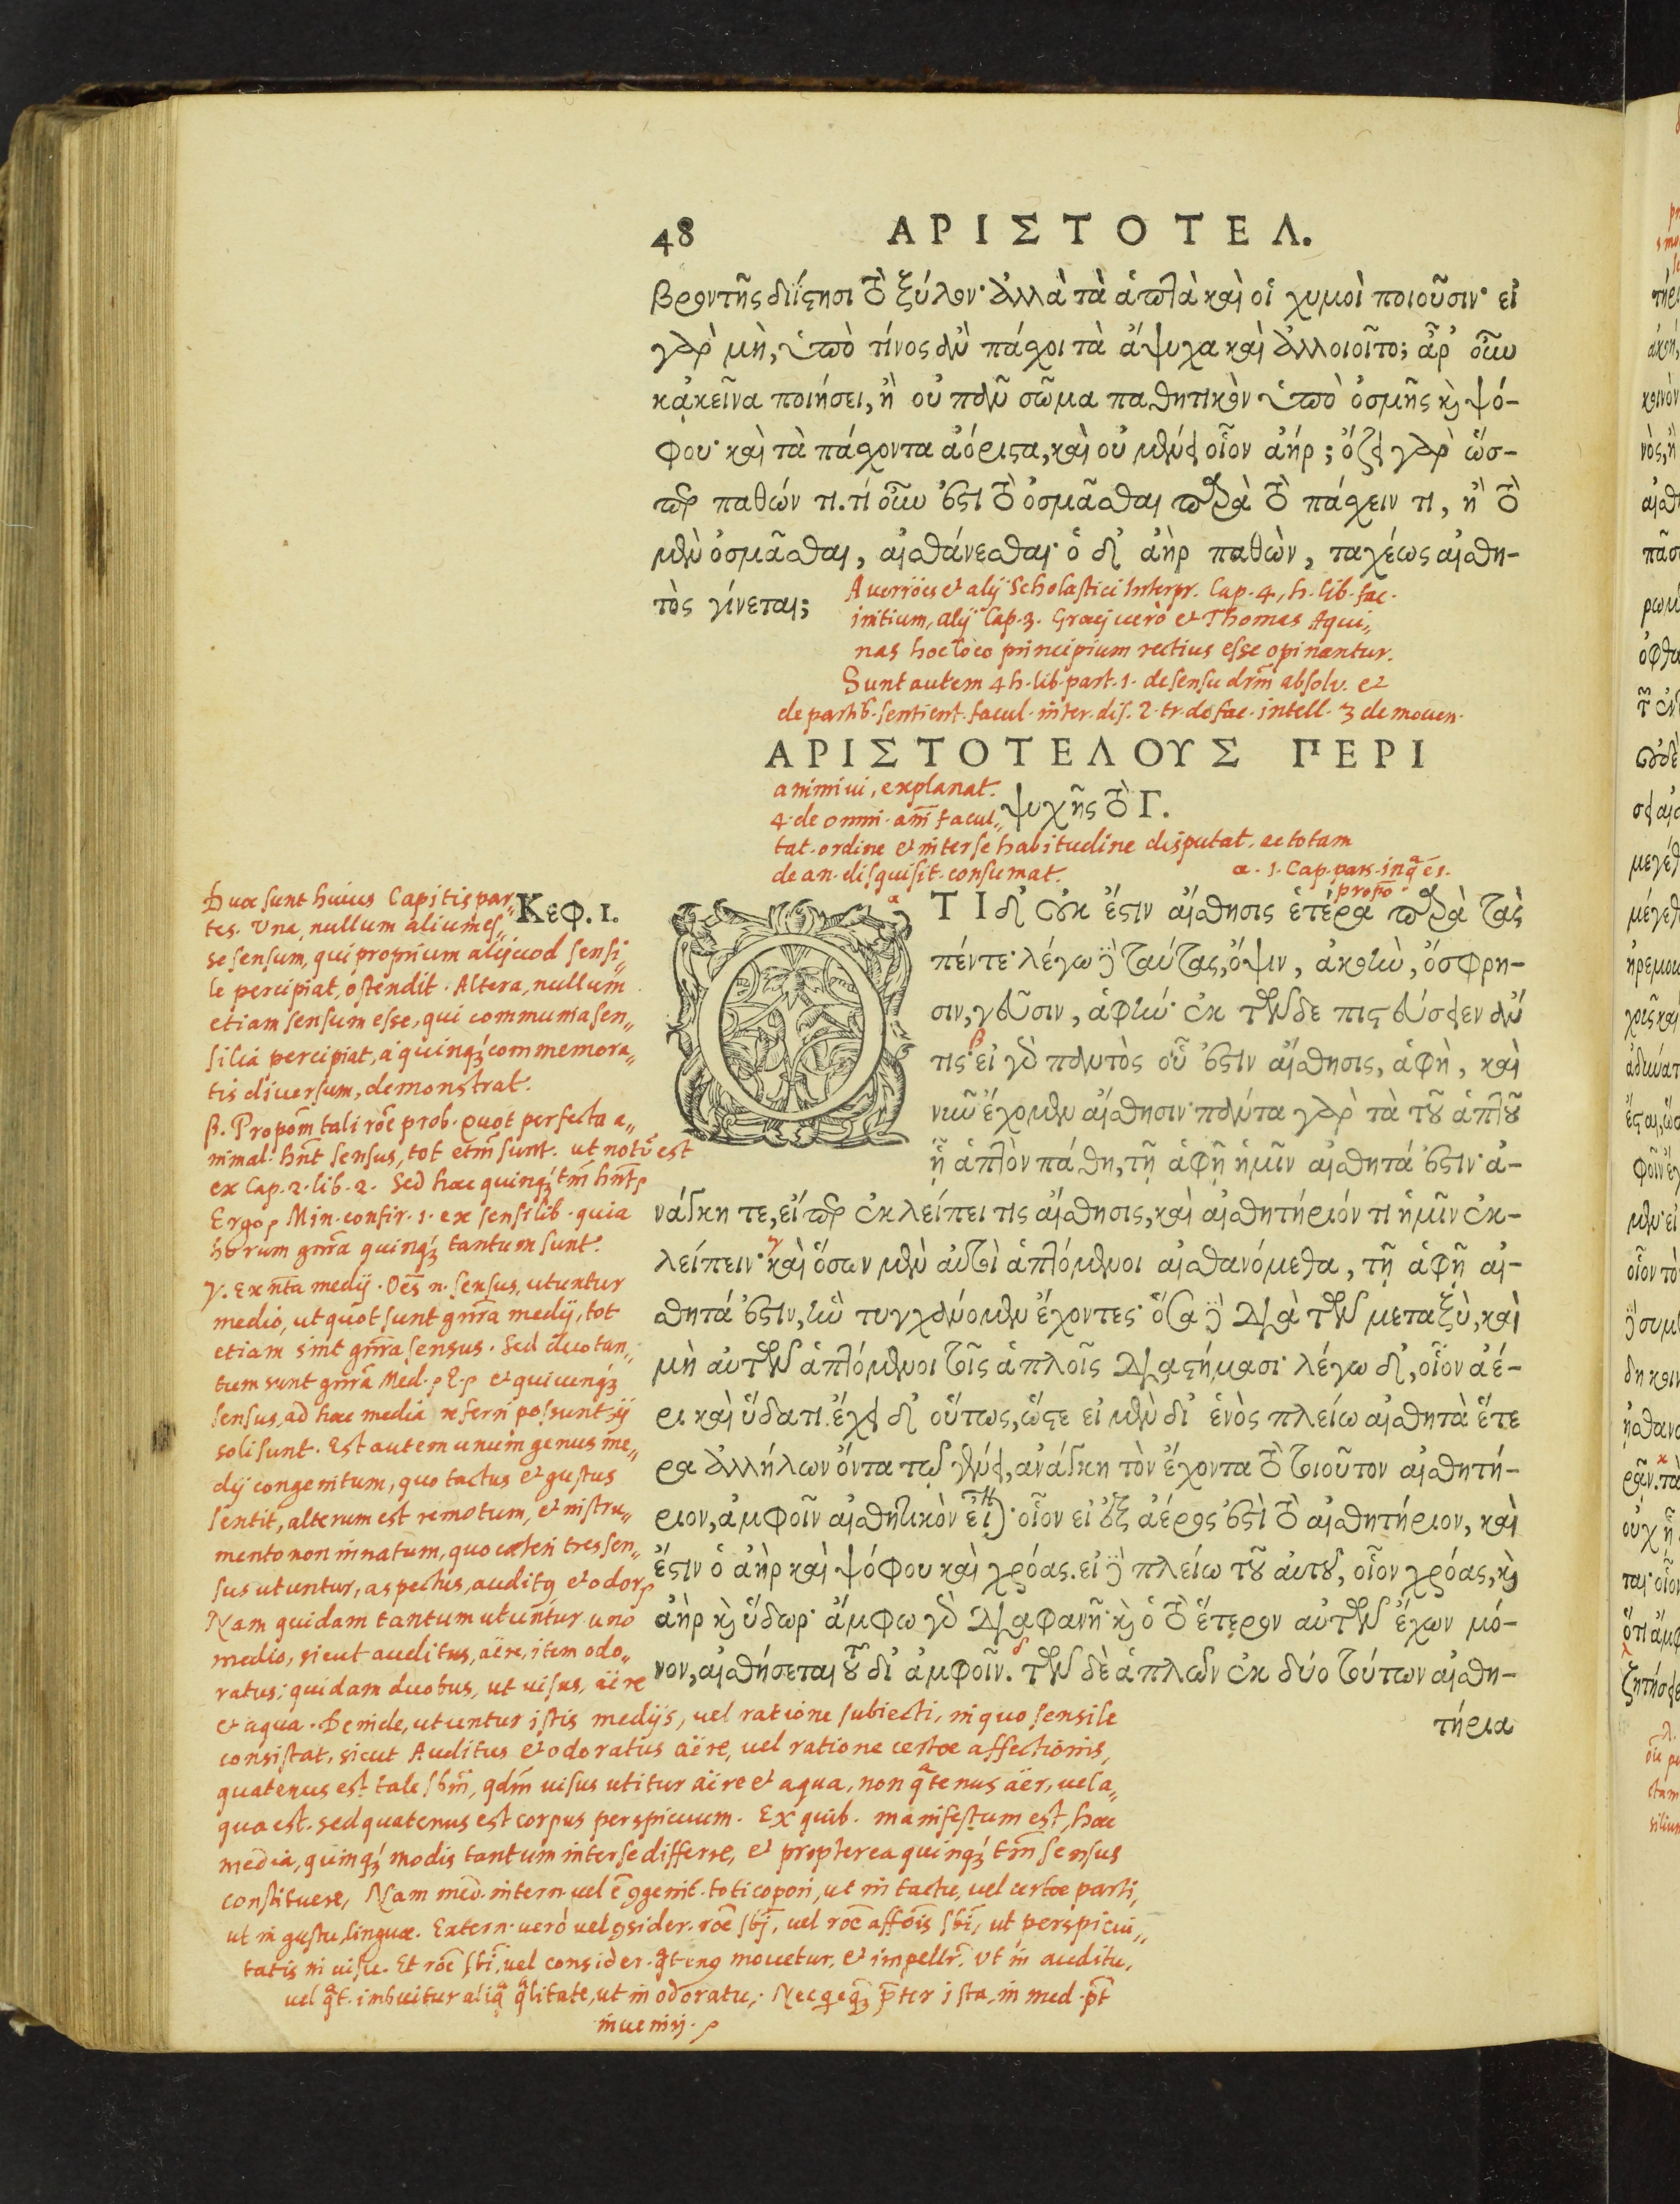 48 ΑΡΙΣΤΟΤΕΛ.
βροντῆς διΐστησι τὸ ξύλον· ἀλλὰ τὰ ἁπτὰ καὶ οἱ χυμοὶ ποιοῦσιν· εἰ
γὰρ μὴ, ὑπὸ τίνος ἂν πάσχοι τὰ ἄψυχα καὶ ἀλλοιοῖτο; ἆρ' οὖν
κἀκεῖνα ποιήσει, ἢ οὐ πᾶν σῶμα παθητικὸν ὑπὸ ὀσμῆς καὶ ψό-
φου· καὶ τὰ πάσχοντα ἀόριστα, καὶ οὐ μένει οἷον ἀήρ; ὄζει γὰρ ὥσ-
περ παθών τι. τί οὖν ἐστὶ τὸ ὀσμᾶσθαι παρὰ τὸ πάσχειν τι, ἢ τὸ
μὲν ὀσμᾶσθαι, αἰσθάνεσθαι· ὁ δ' ἀὴρ παθὼν, ταχέως αἰσθη-
τὸς γίνεται;
Averröes et alij Scholastici Interpr. Cap. 4, h. lib. fac.
initium, alij Cap. 3. Graeci uerò et Thomas Aqui„
nas hoc loco principium rectius esse opinantur.
Sunt autem 4 h. lib. part. 1. de sensu absolv. et
de partib. sentient. facul. inter. dis. 2. tr. de fac. intell. 3 de mouen.
ΑΡΙΣΤΟΤΕΛΟΥΣ ΠΕΡΙ
animi ui, explanat.
ψυχῆς τὸ Γ.
4. de omni. facul„
tat. ordine et inter se habitudine disputat, ac totam
de an. disquisit. consumat.
α. 1. Cap. pars.
Κεφ. 1.
Duae sunt huius Capitis par„
tes. Una, nullum alium es„
se sensum, qui proprium aliquod sensi„
le percipiat, ostendit. Altera, nullum
etiam sensum esse, qui communia sen„
silia percipiat, à quinq; commemora„
tis diuersum, demonstrat.
β. Propom̃ tali roẽ prob. Quot perfecta a„
nimal. hñt sensus, tot etm̃ sunt. ut notũ est
ex Cap. 2. lib. 2. Sed haec quinq; tm̃ hñt
Ergo Min. confir. 1. ex sensilib. quia
horum gñra quinq; tantum sunt.
γ. Ex medij. Oẽs n. sensus, utuntur
medio, ut quot sunt gñra medij, tot
etiam sint gñra sensus. Sed duo tan„
tum sunt gñra Med. et quicunq;
sensus, ad haec media referri possunt, ij
soli sunt. Est autem unum genus me„
dij congenitum, quo tactus et gustus
sentit, alterum est remotum, et instru„
mento non innatum, quo caeteri tres sen„
sus utuntur, aspectus, auditus et odor
Nam quidam tantum utuntur uno
medio, sicut auditus, aëre, item odo„
ratus; quidam duobus, ut uisus, aëre
et aqua. Deinde, utuntur istis medijs, uel ratione subiecti, in quo sensile
consistat, sicut Auditus et odoratus aëre, uel ratione certae affectionis,
quatenus est tale, uisus utitur aëre et aqua, non quatenus aër, uel a„
qua est. sed quatenus est corpus perspicuum. Ex quib. manifestum est, haec
media, quinq; modis tantum inter se differre, et propterea quinq; tm̃ sensus
constituere, Nam med. intern. uel toti corpori, ut in tactu, uel certae parti,
ut in gustu, linguae. Extern. uerò uel consider. roẽ, uel roẽ, ut perspicui„
tatis in uisu. Et roẽ, uel consider. mouetur, et impellr. Ut in auditu,
uel imbuitur qualitate, ut in odoratu. ista, in med.
inueniri.
ΟΤΙ δ' οὐκ ἔστιν αἴσθησις ἑτέρα παρὰ τὰς
πέντε· λέγω δὲ ταύτας, ὄψιν, ἀκοὴν, ὄσφρη-
σιν, γεῦσιν, ἁφὴν· ἐκ τῶνδε πιστεύσειεν ἄν
τις· εἰ γὰρ παντὸς οὗ ἐστὶν αἴσθησις, ἁφὴ, καὶ
νῦν ἔχομεν αἴσθησιν· πάντα γὰρ τὰ τοῦ ἁπτοῦ
ᾗ ἁπτὸν πάθη, τῇ ἁφῇ ἡμῖν αἰσθητά ἐστιν· ἀ-
νάγκη τε, εἴπερ ἐκλείπει τις αἴσθησις, καὶ αἰσθητήριόν τι ἡμῖν ἐκ-
λείπειν· καὶ ὅσων μὲν αὐτοὶ ἁπτόμενοι αἰσθανόμεθα, τῇ ἁφῇ αἰ-
σθητά ἐστιν, ἣν τυγχάνομεν ἔχοντες· ὅσα δὲ διὰ τῶν μεταξὺ, καὶ
μὴ αὐτῶν ἁπτόμενοι τοῖς ἁπλοῖς διαστήμασι· λέγω δ', οἷον ἀέ-
ρι καὶ ὕδατι. ἔχει δ' οὕτως, ὥστε εἰ μὲν δι' ἑνὸς πλείω αἰσθητὰ ἕτε
ρα ἀλλήλων ὄντα τῷ γένει, ἀνάγκη τὸν ἔχοντα τὸ τοιοῦτον αἰσθητή-
ριον, ἀμφοῖν αἰσθητικὸν εἶναι· οἷον εἰ ἐξ ἀέρος ἐστὶ τὸ αἰσθητήριον, καὶ
ἔστιν ὁ ἀὴρ καὶ ψόφου καὶ χρόας. εἰ δὲ πλείω τοῦ αὐτοῦ, οἷον χρόας, καὶ
ἀὴρ καὶ ὕδωρ· ἄμφω γὰρ διαφανῆ· καὶ ὁ τὸ ἕτερον αὐτῶν ἔχων μό-
νον, αἰσθήσεται τοῦ δι' ἀμφοῖν. τῶν δὲ ἁπλῶν ἐκ δύο τούτων αἰσθη-
τήρια